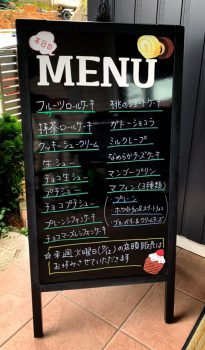 本日の
MENU
フルーツロールケーキ
抹茶ロールケーキ
クッキーシュークリーム
生シュー
チョコ生シュー
プチシュー
チョコプチシュー
プレーンシフォンケーキ
チョコマーブルシフォンケーキ
桃のショートケーキ
ガトーショコラ
ミルクレープ
なめらかチーズケーキ
マンゴープリン
マフィン(3種類)
プレーン
ホワイトチョコ&スイートチョコ
ブルーベリー&クリームチーズ
☆来週火曜日(7/12)の店頭販売は
お休みさせていただきます